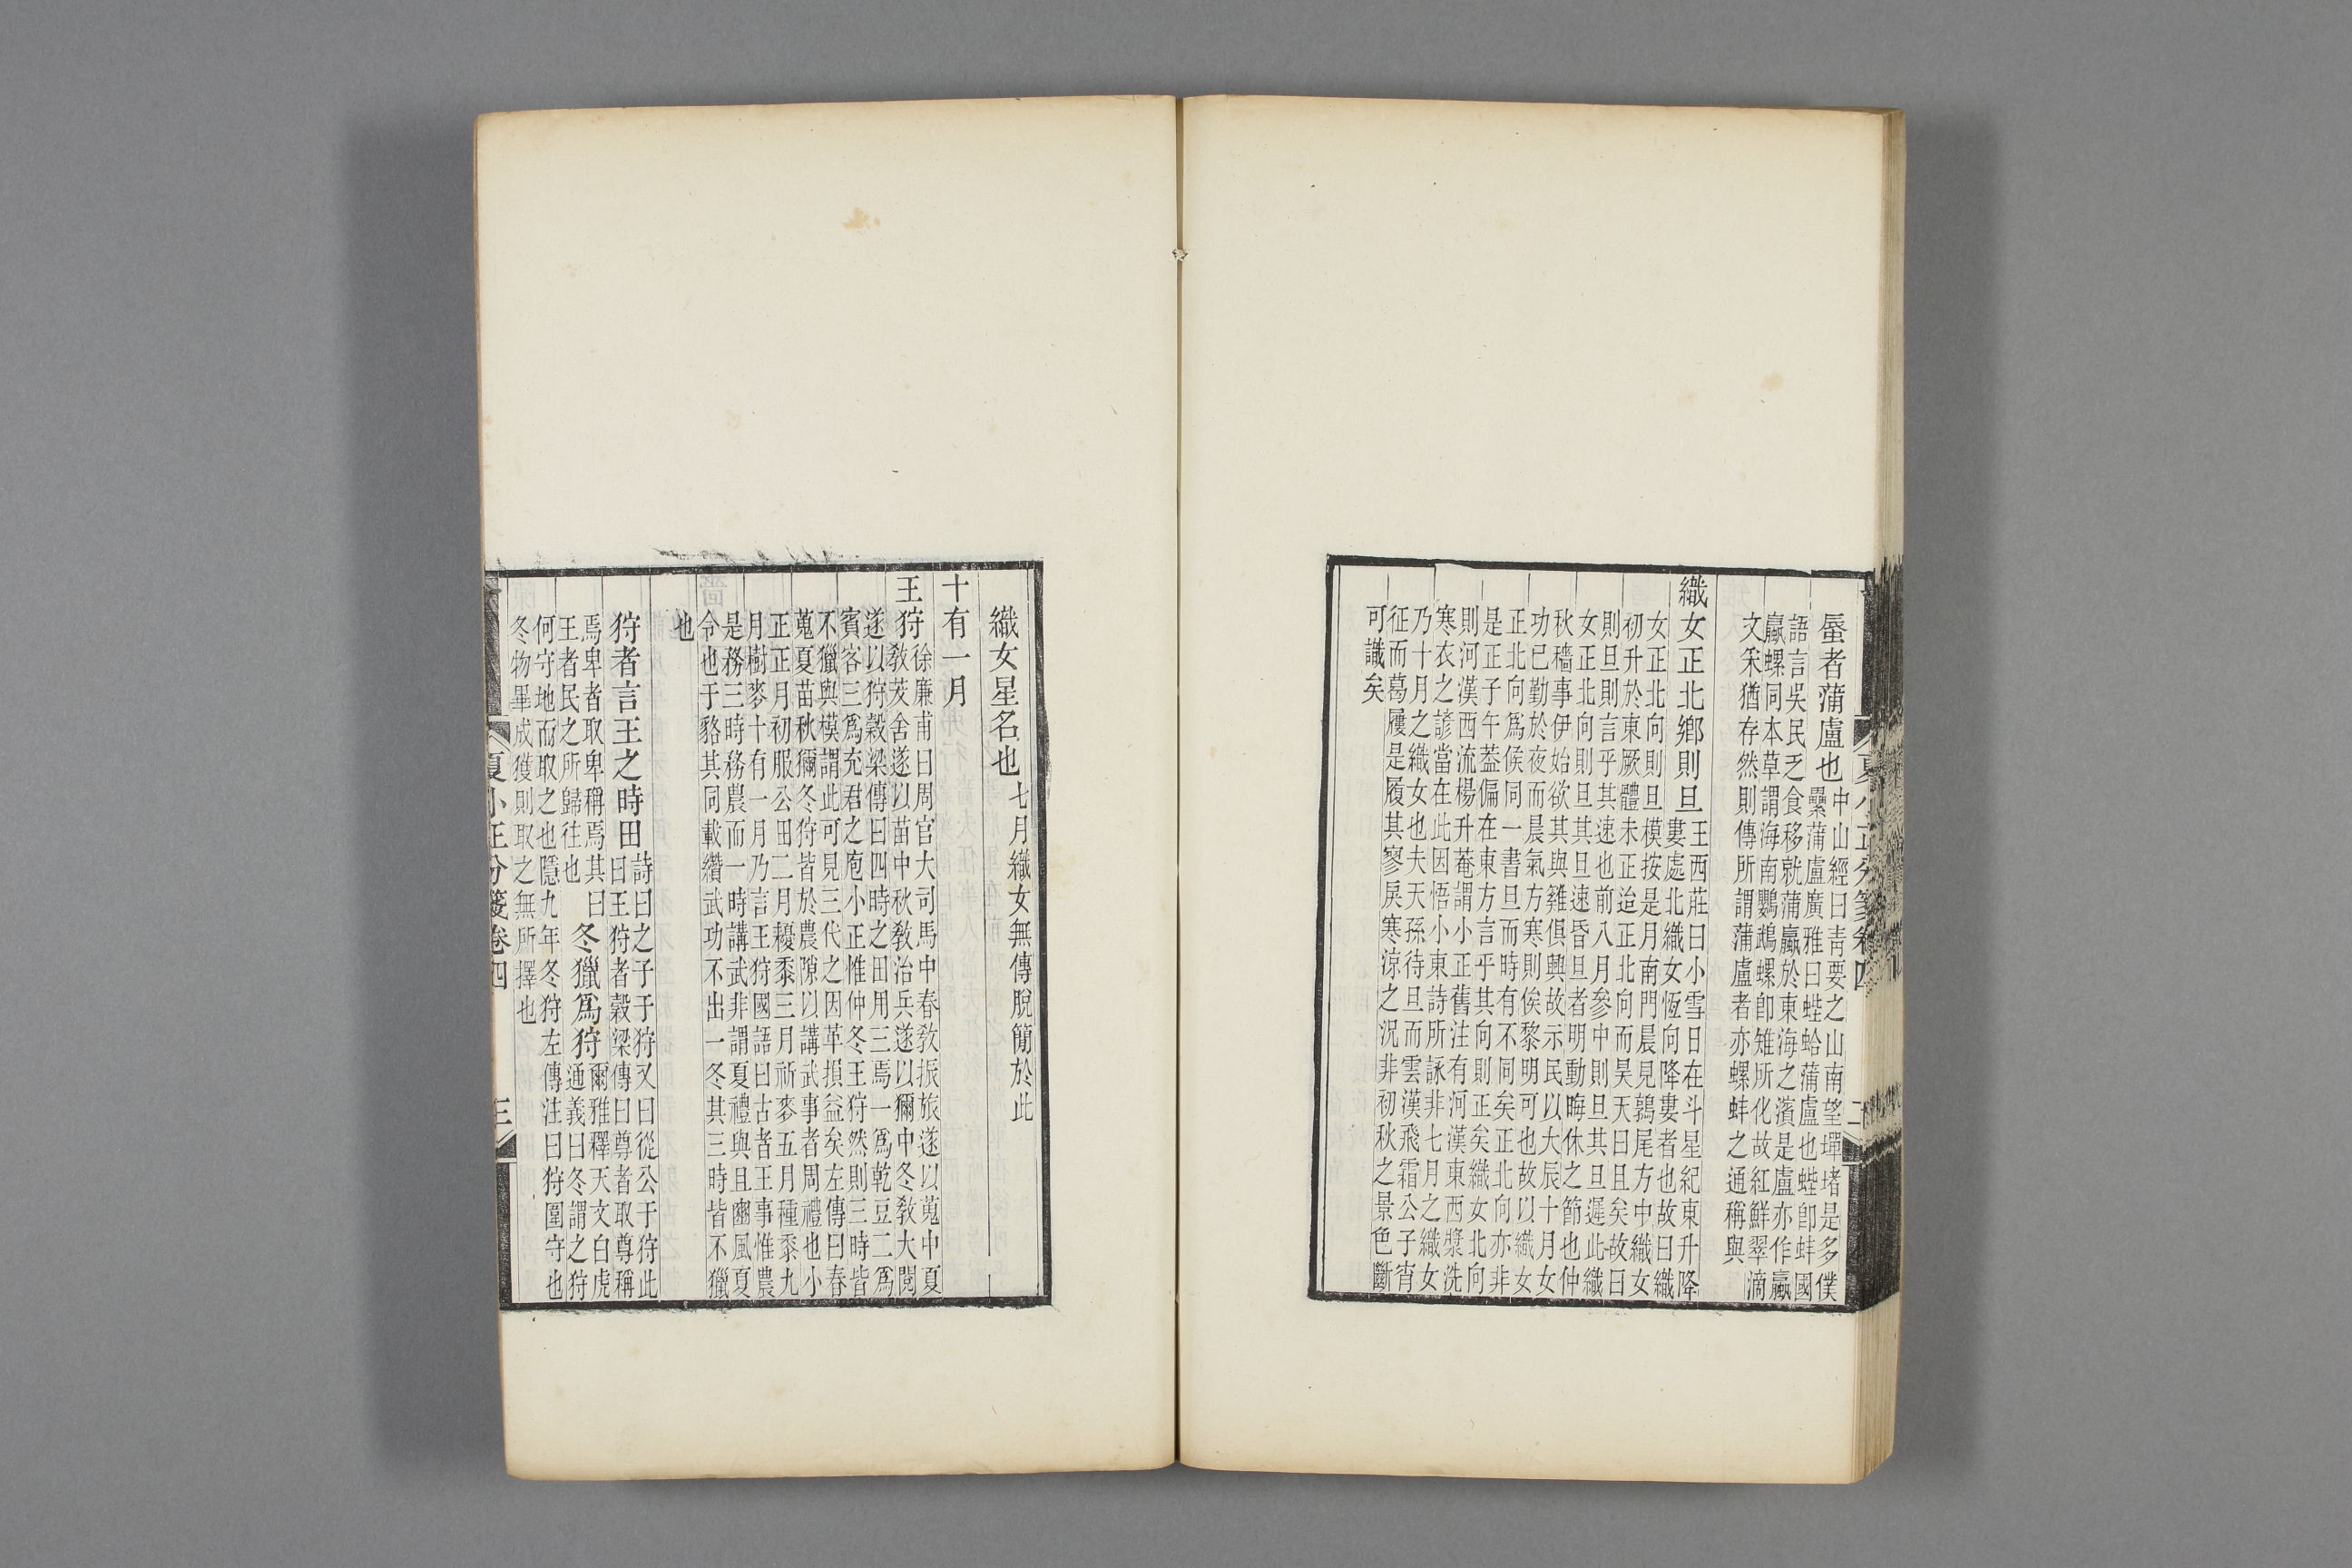 蜃者蒲盧也中山經曰靑要之山南望墠堵是多僕
纍蒲盧廣雅曰蜌蛤蒲盧也蜌卽蚌國
語言吳民乏食移就蒲蠃於東海之濱是盧亦作蠃
蠃螺同本草謂海南鸚鵡螺卽雉所化故紅鮮翠滴
文采猶存然則傳所謂蒲盧者亦螺蚌之通稱與
織女正北鄉則旦王西莊曰小雪日在斗星紀東升降
婁處北織女恆向降婁者也故曰織
女正北向則旦模按是月南門晨見鶉尾方中織女
初升於東厥體未正迨正北向而昊天曰旦矣故曰
則旦則言乎其速也前八月參中則旦其旦遲此織
女正北向則旦其旦速昏旦者明動晦休之節也仲
秋穡事伊始欲其與雞俱興故示民以大辰十月女
功已勤於夜而晨氣方寒則俟黎明可也故以織女
正北向爲候同一書旦而時有不同矣正北向亦非
是正子午葢偏在東方言乎其向則正矣織女北向
則河漢西流楊升菴謂小正舊注有河漢東西漿洗
寒衣之諺當在此因悟小東詩所詠非七月之織女
乃十月之織女也夫天孫待旦而雲漢飛霜公子宵
征而葛屨是履其寥戾寒涼之況非初秋之景色斷
可識矣
夏小正分箋卷四
二
織女星名也七月織女無傳脫簡於此
十有一月
王狩徐廉甫曰周官大司馬中春敎振旅遂以蒐中夏
敎茇舍遂以苗中秋敎治兵遂以獮中冬敎大閱
遂以狩穀梁傳曰四時之田用三焉一爲乾豆二爲
賓客三爲充君之庖小正惟仲冬王狩然則三時皆
不獵與模謂此可見三代之因革損益矣左傳曰春
蒐夏苗秋獮冬狩皆於農隙以講武事者周禮也小
正正月初服公田二月耰黍三月祈麥五月種黍九
月樹麥十有一月乃言王狩國語曰古者王事惟農
是務三時務農而一時講武非謂夏禮與且豳風夏
令也于貉其同載纘武功不出一冬其三時皆不獵
也
狩者言王之時田詩曰之子于狩又曰從公于狩此
曰王狩者穀梁傳曰尊者取尊稱
焉卑者取卑稱焉其曰冬獵爲狩爾雅釋天文白虎
王者民之所歸往也通義曰冬謂之狩
何守地而取之也隱九年冬狩左傳注曰狩圍守也
冬物畢成獲則取之無所擇也
夏小正分箋卷四
三